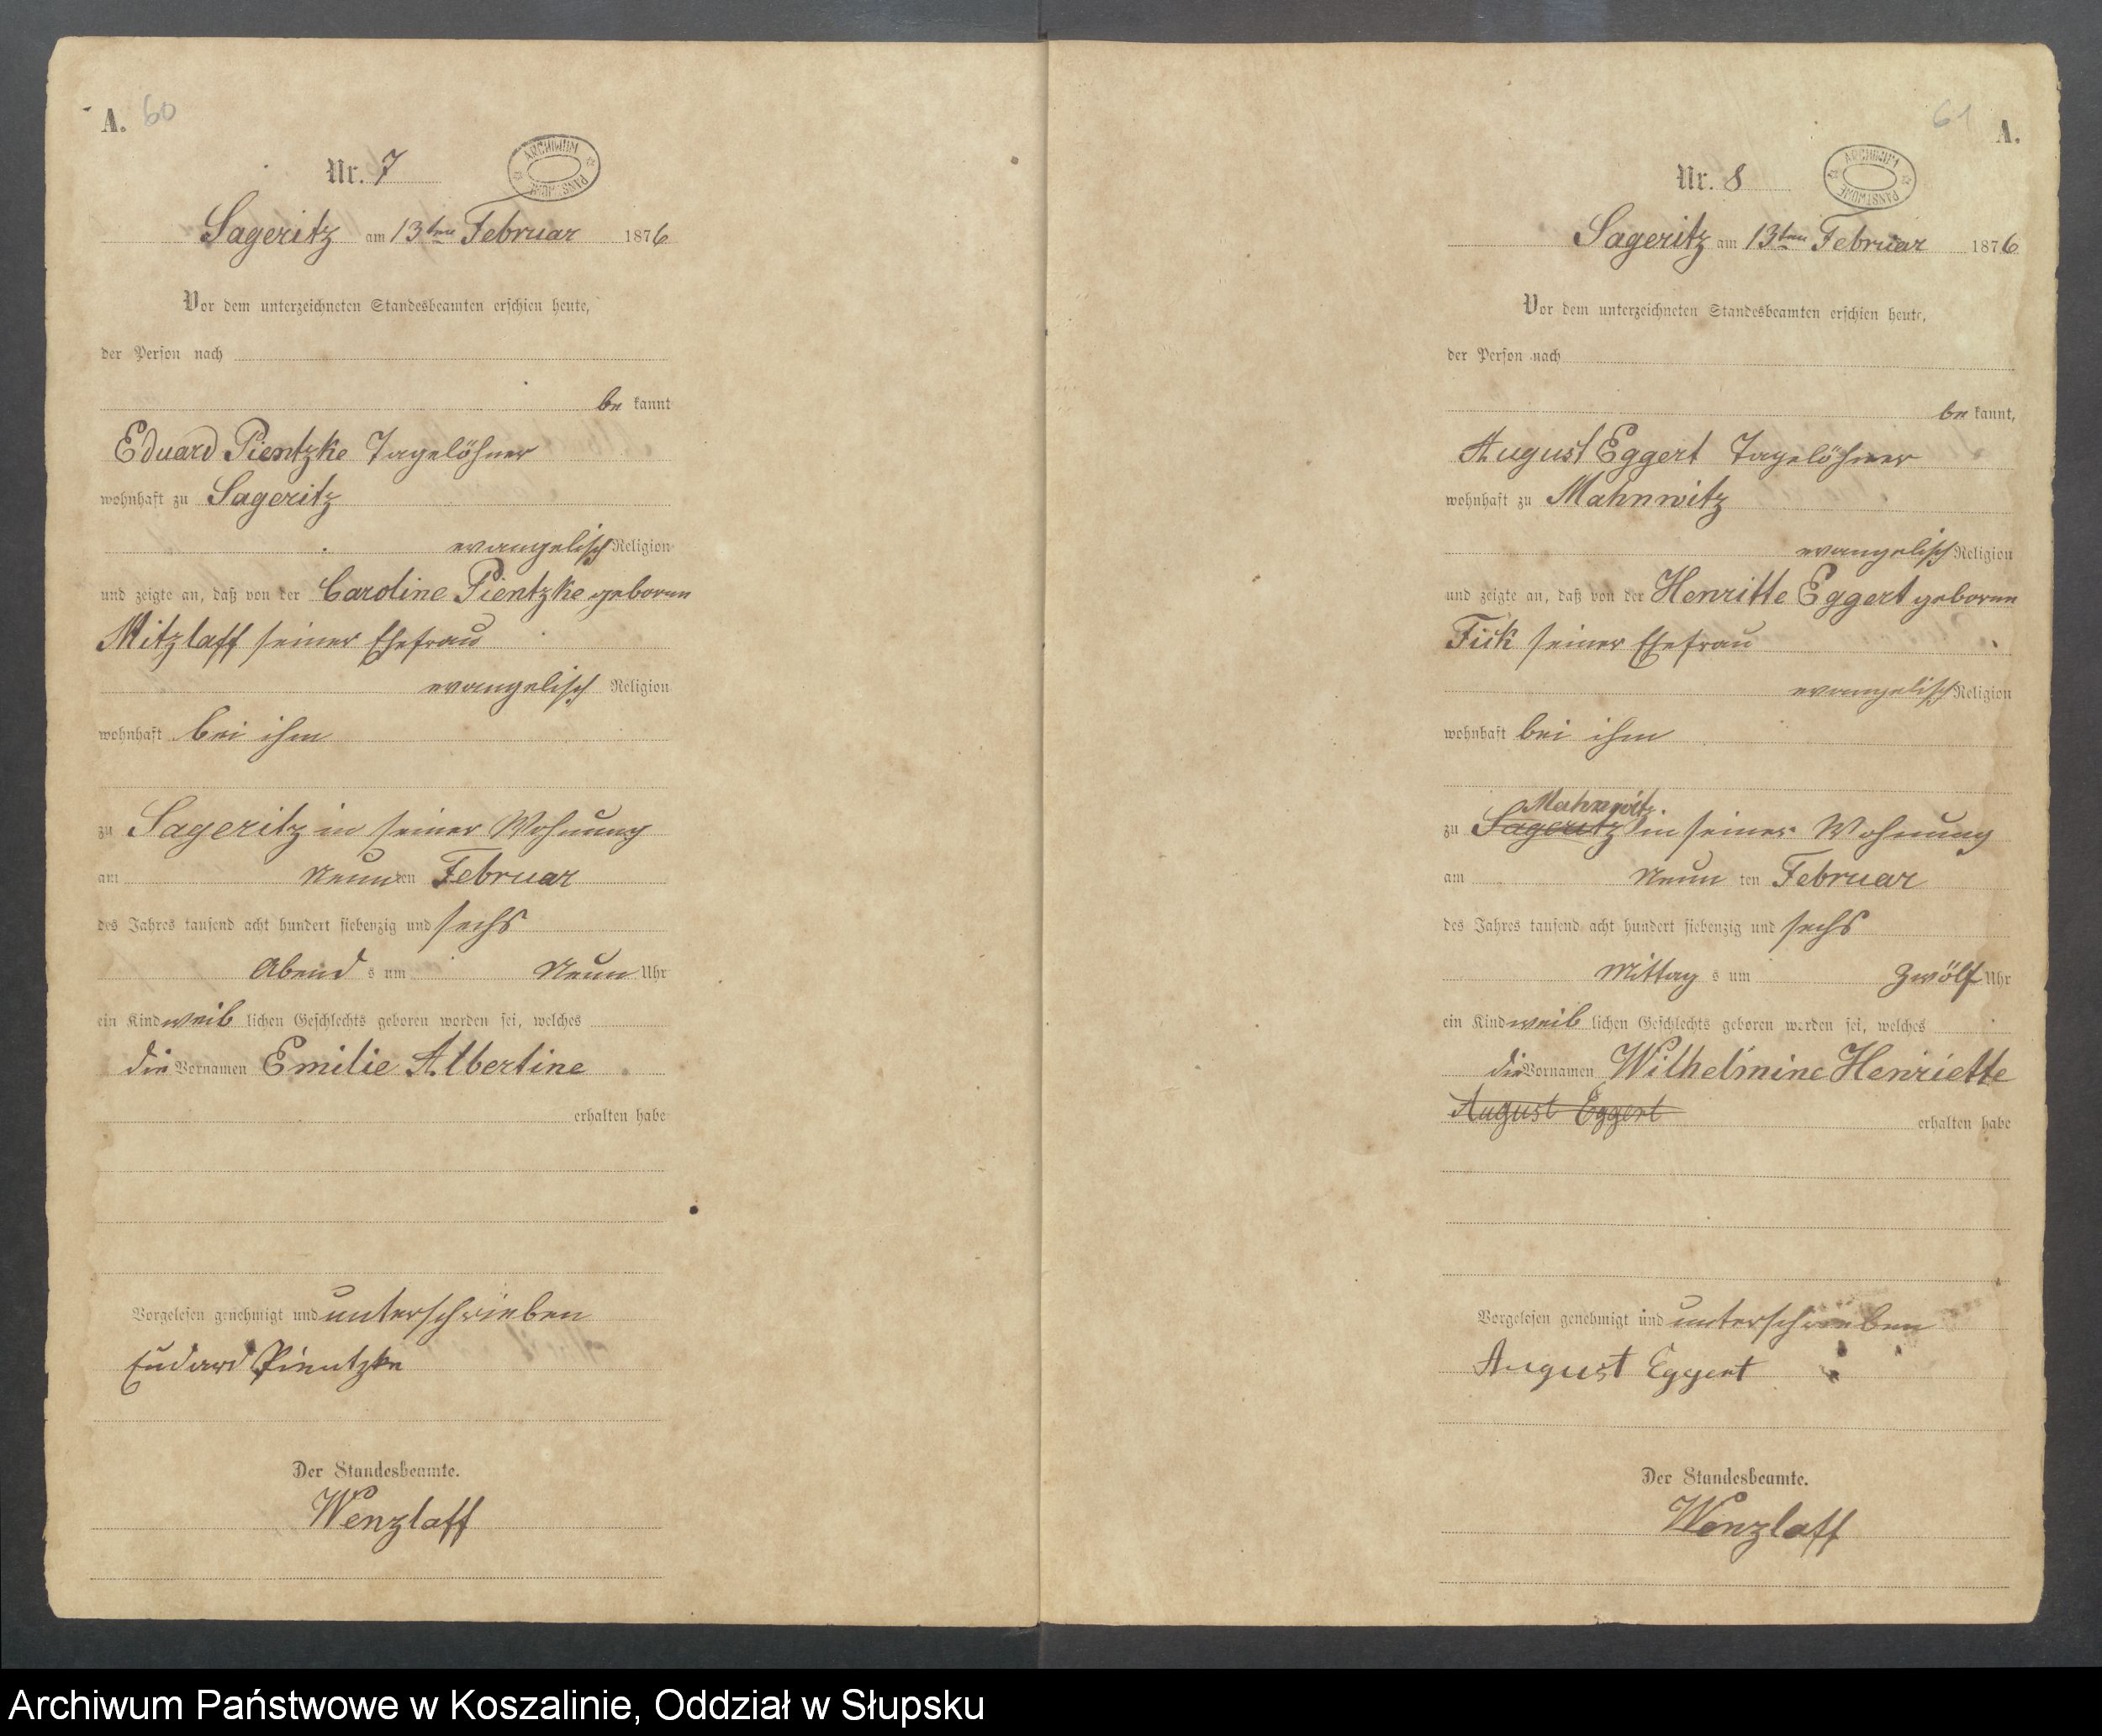 A. 60
Nr. 7
ARCHIWUM PAŃSTWOWE
Sageritz am 13ten Februar 1876
Vor dem unterzeichneten Standesbeamten erschien heute,
der Person nach
be kannt
Eduard Pientzke Tagelöhner
wohnhaft zu Sageritz
evangelisch Religion
und zeigte an, daß von der Caroline Pientzke geboren
Mitzlaff seiner Ehefrau
evangelisch Religion
wohnhaft bei ihm
zu Sageritz in seiner Wohnung
am Neun ten Februar
des Jahres tausend acht hundert siebenzig und sechs
Abend s um Neun Uhr
ein Kind weib lichen Geschlechts geboren worden sei, welches
die Vornamen Emilie Albertine
erhalten habe
Vorgelesen genehmigt und unterschrieben
Eudard Pientzke
Der Standesbeamte.
Wenzlaff
61 A.
Nr. 8
ARCHIWUM PAŃSTWOWE
Sageritz am 13ten Februar 1876
Vor dem unterzeichneten Standesbeamten erschien heute,
der Person nach
be kannt,
August Eggert Tagelöhner
wohnhaft zu Mahnwitz
evangelisch Religion
und zeigte an, daß von der Henritte Eggert geboren
Fick seiner Ehefrau
evangelisch Religion
wohnhaft bei ihm
Mahnwitz
zu Sageritz in seiner Wohnung
am Neun ten Februar
des Jahres tausend acht hundert siebenzig und sechs
Mittag s um Zwölf Uhr
ein Kind weib lichen Geschlechts geboren worden sei, welches
die Vornamen Wilhelmine Henriette
August Eggert erhalten habe
Vorgelesen genehmigt und unterschrieben
August Eggert
Der Standesbeamte.
Wenzlaff
Archiwum Państwowe w Koszalinie, Oddział w Słupsku